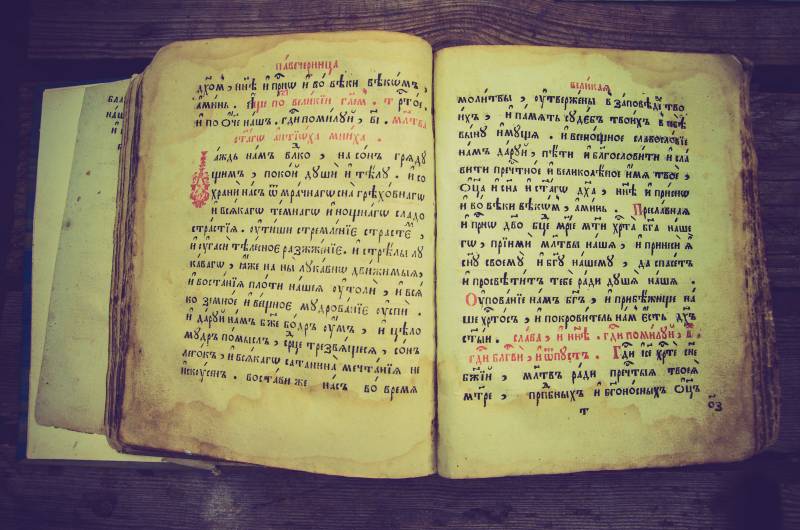 павечерница
дх҃ом, ны́нѣ и҆ при́сно и҆ во вѣ́ки вѣкѡ́мъ,
а҆ми́нь. та́же по вели́кїи
и҆ по Ѻ҆́ч҃е на́шъ. гд҇и поми́луй, в҃і. мл҃тва
ст҃а́гѡ а҆нтїо́ха мни́ха.
Да́ждь на́мъ влⷣко, на со́нъ грѧдꙋ́
щимъ, поко́й дꙋшѝ и҆ тѣ́лꙋ. и҆ со
хранѝ на́съ ѿ мра́чнагѡ сна̀ грѣхо́внагѡ
и҆ всѧ́кагѡ те́мнагѡ и҆ нощна́гѡ сладо
стра́стїѧ. ᲂу҆тишѝ стремле́нїе страсте́й,
и҆ ᲂу҆гасѝ тѣле́сное разжже́нїе. и҆ стрѣ́лы лꙋ
ка́вагѡ, ꙗ҆́же на ны̀ лꙋка́внѡ дви́жимыѧ,
и҆ воста́нїѧ пло́ти на́шеѧ ᲂу҆толѝ, и҆ всѧ́
ко зе́мное и҆ ве́щное мꙋдрова́нїе ᲂу҆спѝ.
и҆ да́рꙋй на́мъ бж҃е бо́дръ ᲂу҆́мъ, и҆ цѣ́ло
мꙋдръ по́мыслъ, се́рдце трезвѧ́щеесѧ, со́нъ
ле́гокъ, и҆ всѧ́кагѡ сатанина̀ мечта́нїѧ не
и҆скꙋ́сенъ. воста́ви же на́съ во вре́мѧ
вели́каѧ
моли́твы, ᲂу҆твержены̀ в за́повѣдехъ тво
и́хъ, и҆ па́мѧть сꙋде́бъ твои́хъ в себѣ̀
вы́нꙋ и҆мꙋ́ща. и҆ всено́щное славосло́вїе
на́мъ да́рꙋй, пѣ́ти и҆ бл҃гослови́ти и҆ сла́
вити пречⷭ҇тно́е и҆ великолѣ́пое и҆́мѧ твоѐ,
Ѻ҆ц҃а̀ и҆ сн҃а и҆ ст҃а́гѡ дх҃а, ны́нѣ и҆ при́снѡ
и҆ во вѣ́ки вѣкѡ́мъ, а҆ми́нь. Пресла́внаѧ
и҆ при́снѡ дв҃о бц҃е мр҃іе мт҃и хрⷭ҇та̀ бг҃а на́ше
гѡ, прїимѝ мл҃твы на́шѧ, и҆ принесѝ ѧ҆̀
сн҃ꙋ своемꙋ̀ и҆ бг҃ꙋ на́шемꙋ, да спасе́тъ
и҆ просвѣти́тъ тебѐ ра́ди дꙋ́шѧ на́шѧ.
Оу҆пова́нїе на́мъ бг҃ъ, и҆ прибѣ́жище на́
ше хрⷭ҇то́съ, и҆ покрови́тель на́мъ є҆́сть дх҃ъ
ст҃ы́и. сла́ва, и҆ ны́нѣ. гд҇и поми́лꙋй, в҃.
гд҇и бл҃гвѝ, и҆ ѿпꙋ́стъ. Гд҇и і҆с҃е хрⷭ҇тѐ сн҃е
бж҃їй, мл҃твъ ра́ди пречⷭ҇тыѧ твоеѧ̀
мт҃ре, прⷣпбныхъ и҆ бг҃оно́сныхъ Ѻ҆ц҃ъ
т
ѻ҃з